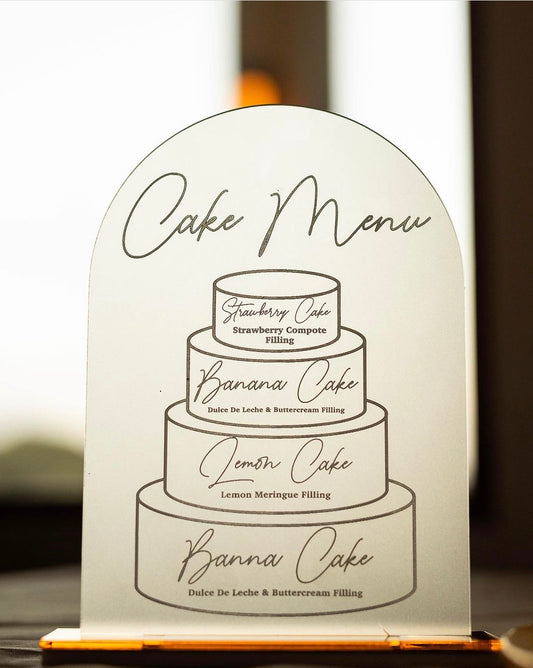 Cake Menu
Strawberry Cake
Strawberry Compote
Filling
Banana Cake
Dulce De Leche & Buttercream Filling
Lemon Cake
Lemon Meringue Filling
Banna Cake
Dulce De Leche & Buttercream Filling